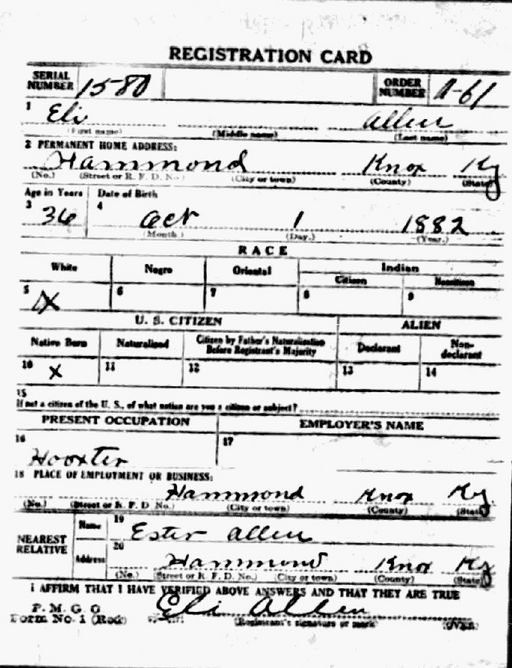 REGISTRATION CARD
SERIAL NUMBER 1580 ORDER NUMBER A-61
1 Eli Allen
(First name) (Middle name) (Last name)
2 PERMANENT HOME ADDRESS:
Hammond Knox Ky
(No.) (Street or R. F. D. No.) (City or town) (County) (State)
Age in Years Date of Birth
3 36 4 Oct 1 1882
(Month.) (Day.) (Year.)
RACE
White Negro Oriental Indian
Citizen Noncitizen
5 X 6 7 8 9
U. S. CITIZEN ALIEN
Native Born Naturalized Citizen by Father's Naturalization Before Registrant's Majority Declarant Non-declarant
10 X 11 12 13 14
15
If not a citizen of the U. S., of what nation are you a citizen or subject?
PRESENT OCCUPATION EMPLOYER'S NAME
16 17
18 PLACE OF EMPLOYMENT OR BUSINESS:
Hammond Knox Ky
(No.) (Street or R. F. D. No.) (City or town) (County) (State)
NEAREST RELATIVE Name 19 Ester Allen
Address 20 Hammond Knox Ky
(No.) (Street or R. F. D. No.) (City or town) (County) (State)
I AFFIRM THAT I HAVE VERIFIED ABOVE ANSWERS AND THAT THEY ARE TRUE
P. M. G. O.
Form No. 1 (Red) Eli Allen
(Registrant's signature or mark) (OVER)